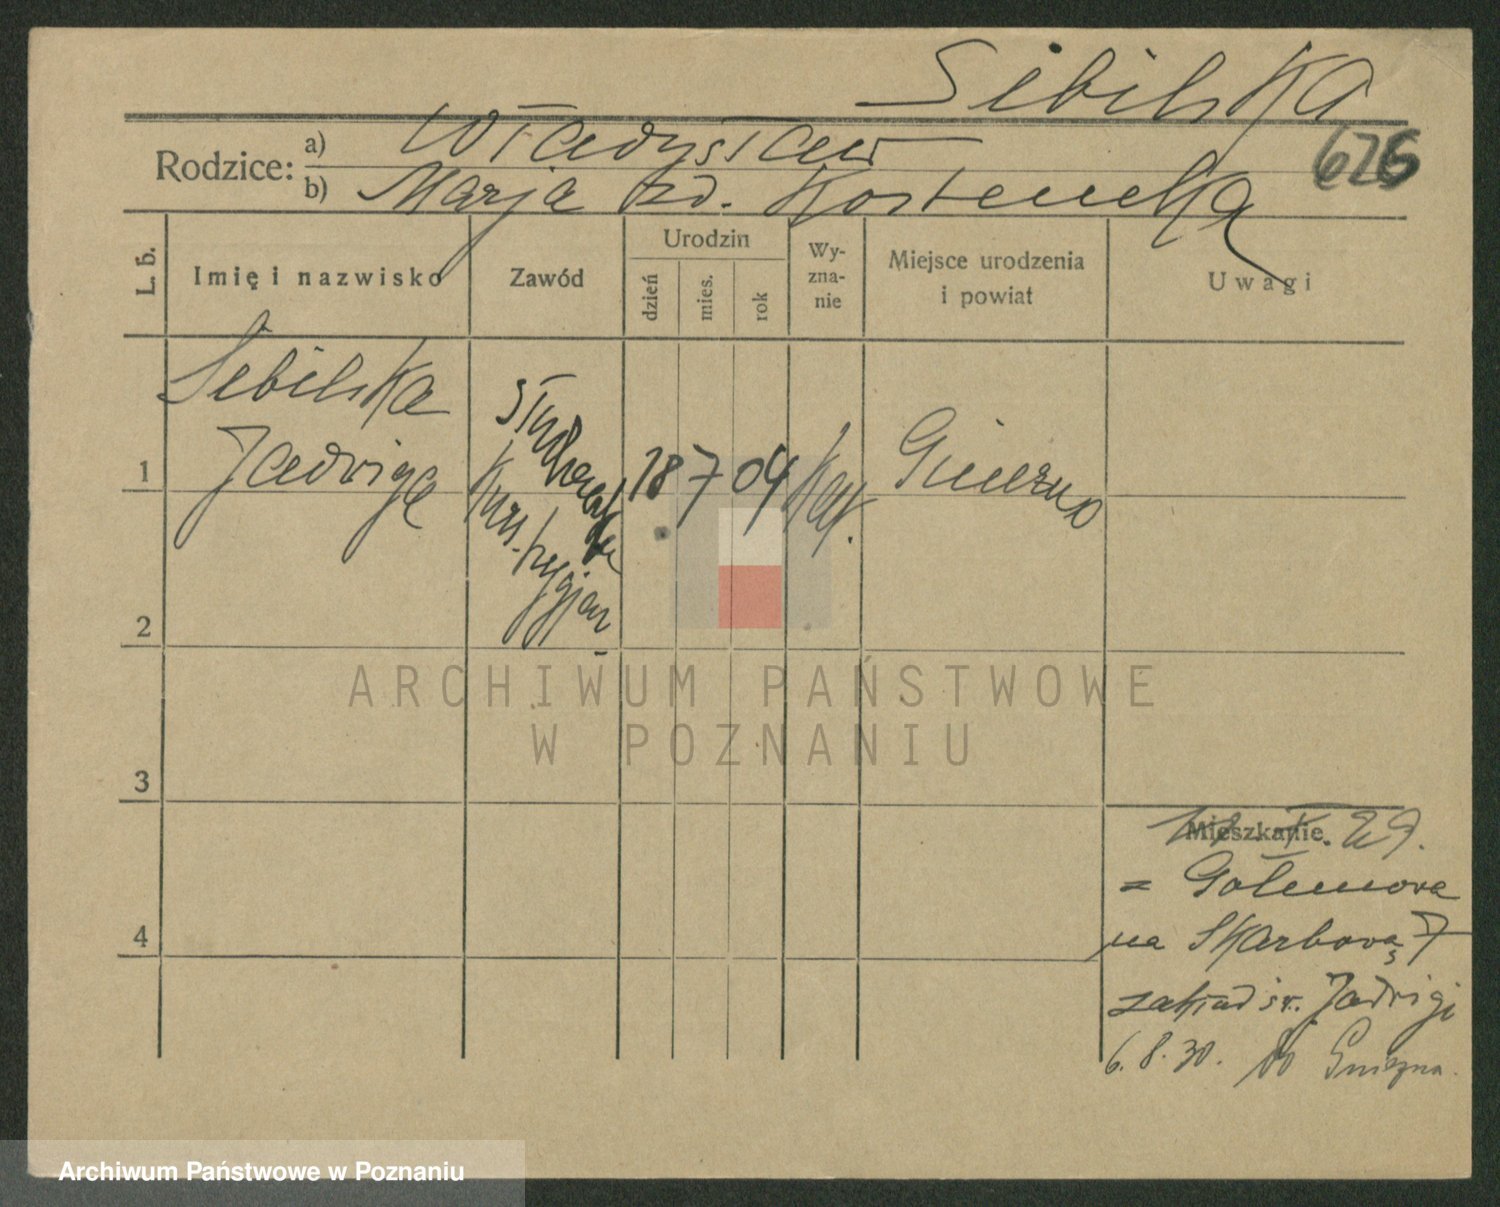 Sibilska
Rodzice: a) Władysław
626
b) Marja zd. Kostencka
L. b.
Imię i nazwisko
Zawód
Urodzin
dzień
mies.
rok
Wy-
zna-
nie
Miejsce urodzenia
i powiat
Uwagi
Sibilska
1 Jadwiga
słuchaczka
Kurs. hygjen
18 7 04
Kat.
Gniezno
2
3
4
Mieszkanie. 29.
z
na Skarbową 7
zakład św. Jadwigi
6. 8. 30. do Gniezna.
ARCHIWUM PAŃSTWOWE
W POZNANIU
Archiwum Państwowe w Poznaniu